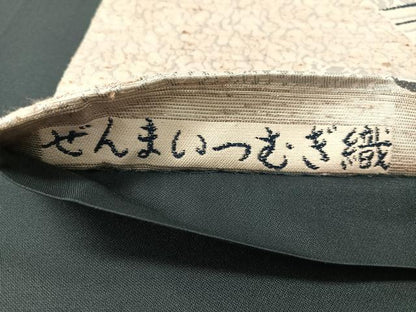 ぜんまいつむぎ織